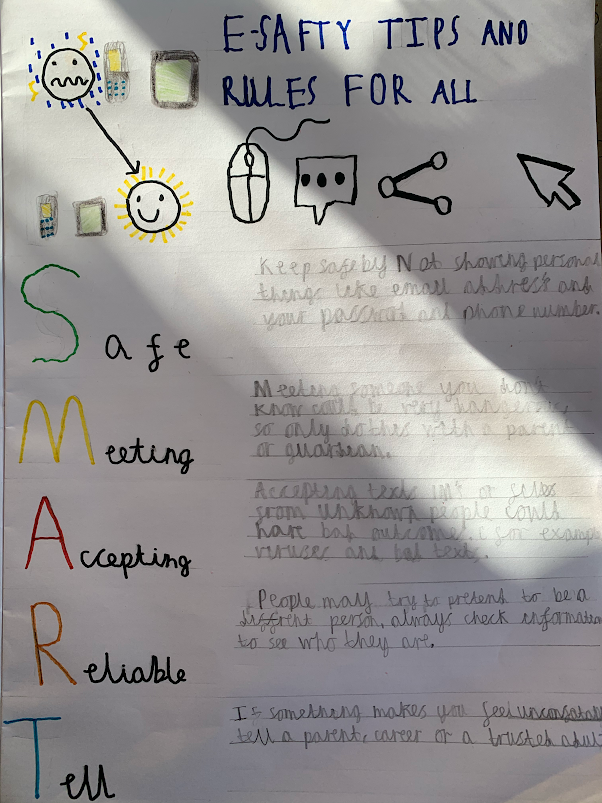 E-SAFTY TIPS AND
RULES FOR ALL
Safe
Keep safe by Not showing personal
things like email address and
your passwort and phone number.
Meeting
Meeting someone you don't
know could be very
so only do this with a parent
or guardean.
Accepting
Accepting texts or files
from unknown people could
have bad outcomes. for exampl
viruses and bad texts.
Reliable
People may try to pretend to be a
diffrent person, always check information
to see who they are.
Tell
If something makes you feel
tell a parent, career or a trusted adul